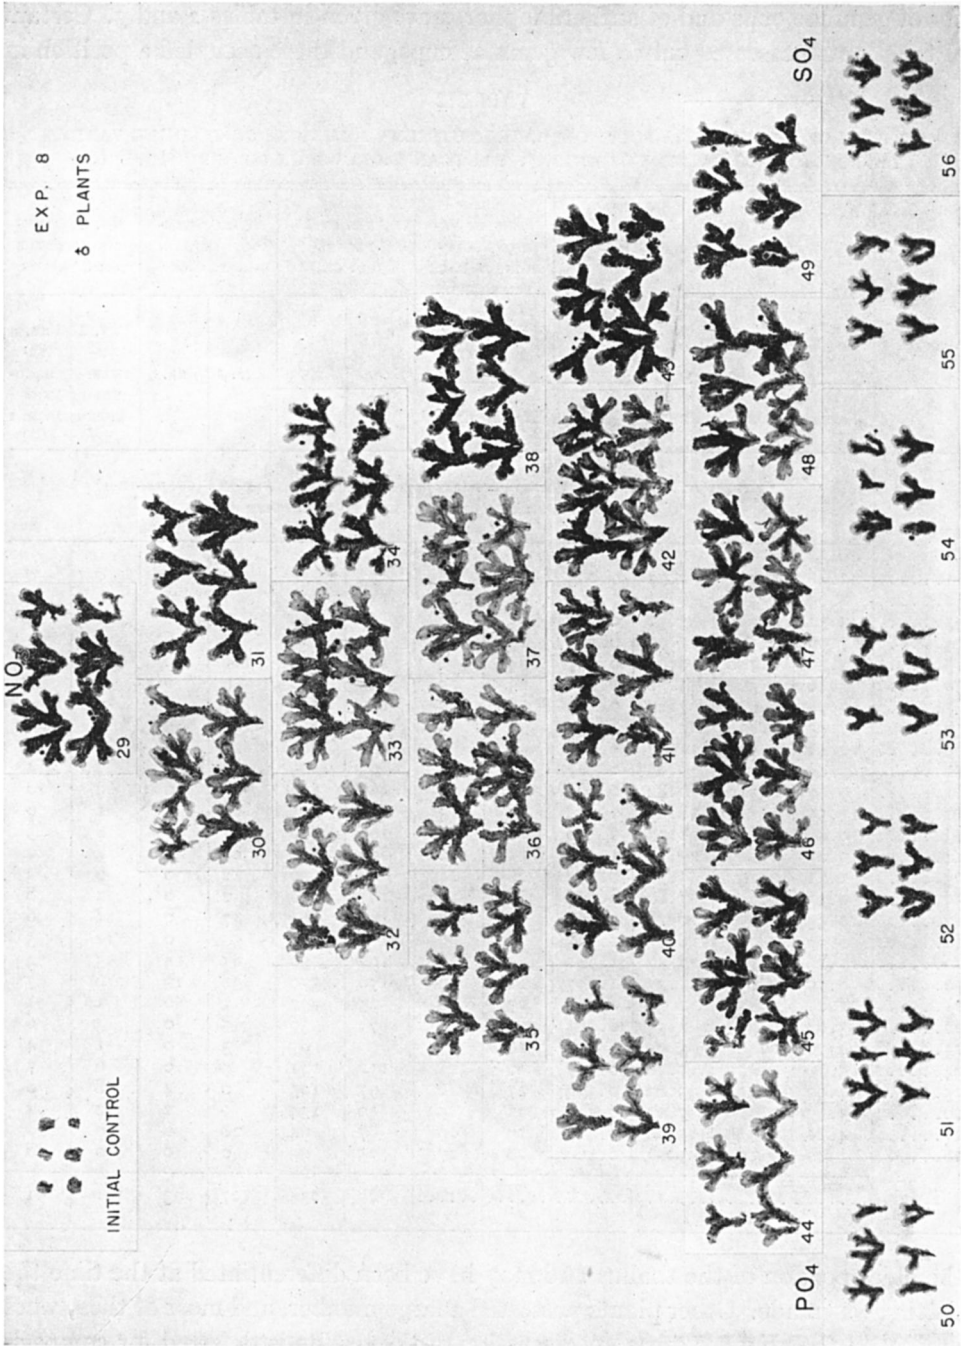 EXP. 8
♂ PLANTS
INITIAL CONTROL
NO
29
30 31
32 33 34
35 36 37 38
39 40 41 42 43
44 45 46 47 48 49
PO₄ SO₄
50 51 52 53 54 55 56